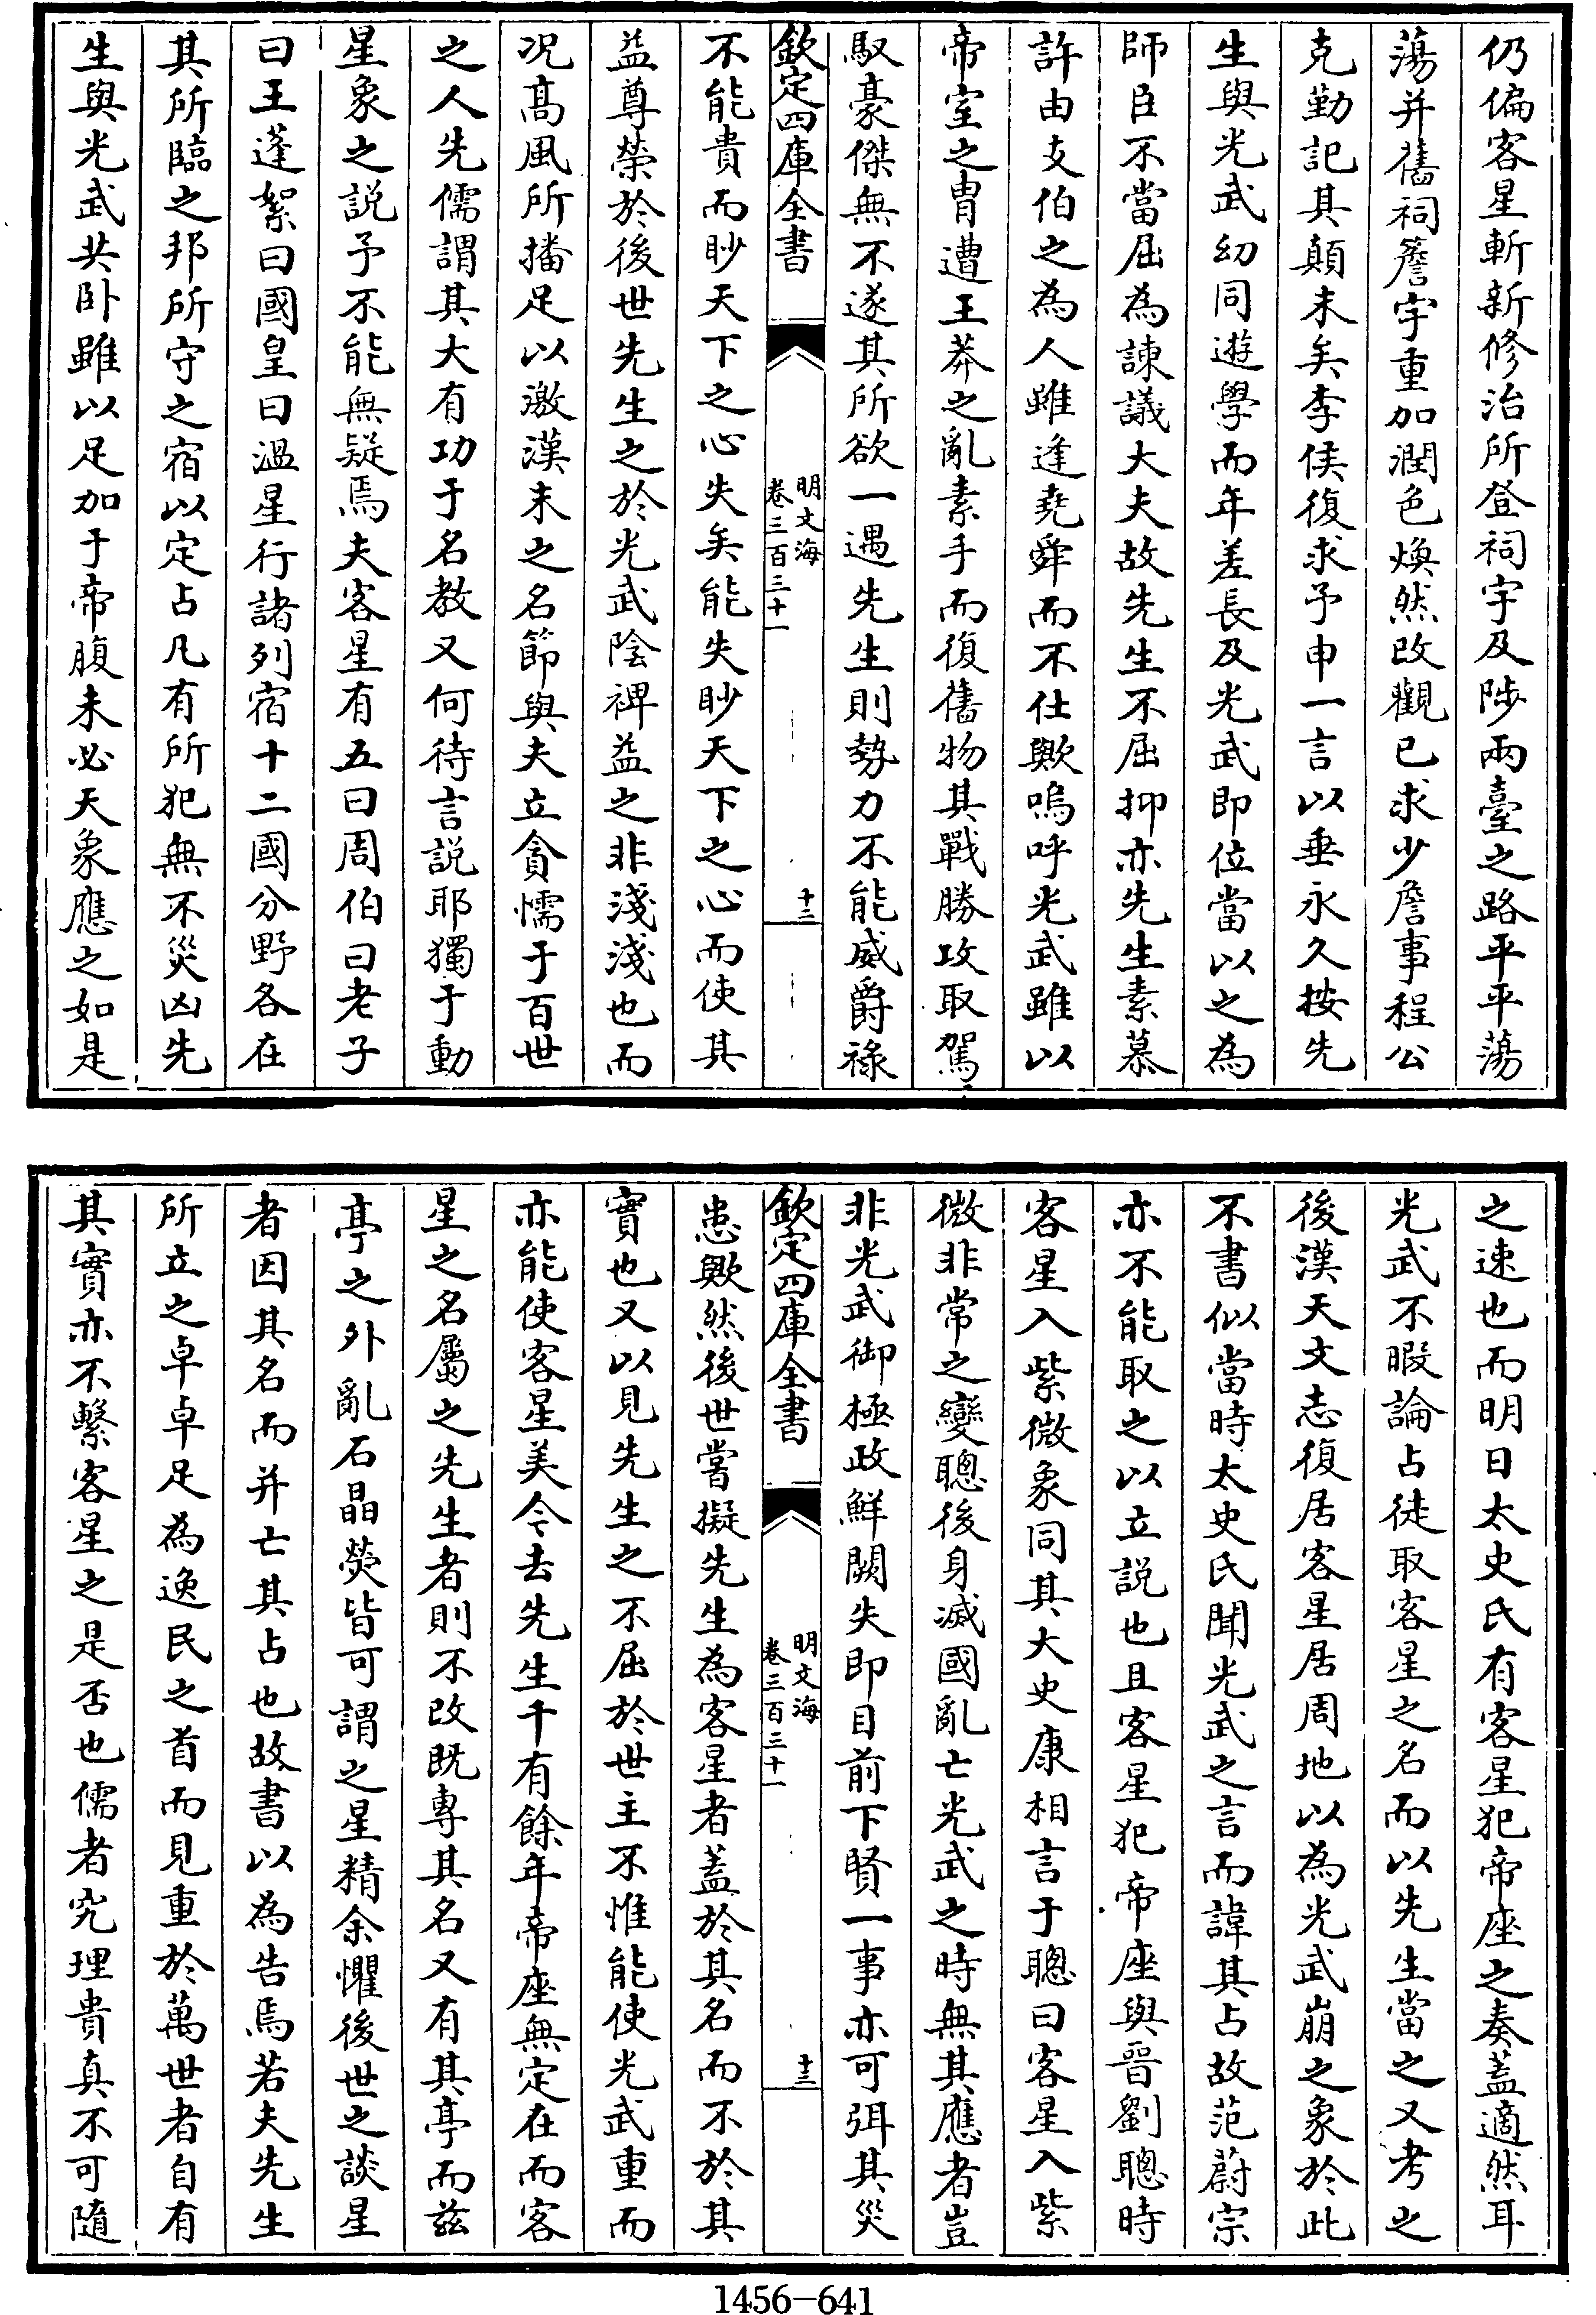 仍偏客星斬新修治所登祠宇及陟兩臺之路平平蕩
蕩并舊祠簷宇重加潤色煥然改觀已求少詹事程公
克勤記其顛末矣李侯復求予申一言以垂永久按先
生與光武幼同遊學而年差長及光武即位當以之為
師臣不當屈為諫議大夫故先生不屈抑亦先生素慕
許由支伯之為人雖逢堯舜而不仕歟嗚呼光武雖以
帝室之胄遭王莽之亂素手而復舊物其戰勝攻取駕
馭豪傑無不遂其所欲一遇先生則勢力不能威爵祿
欽定四庫全書
明文海
卷三百三十一
十二
不能貴而眇天下之心失矣能失眇天下之心而使其
益尊榮於後世先生之於光武陰裨益之非淺淺也而
况高風所播足以激漢末之名節與夫立貪懦于百世
之人先儒謂其大有功于名教又何待言說耶獨于動
星象之說予不能無疑焉夫客星有五曰周伯曰老子
曰王蓬絮曰國皇曰溫星行諸列宿十二國分野各在
其所臨之邦所守之宿以定占凡有所犯無不災凶先
生與光武共卧雖以足加于帝腹未必天象應之如是
之速也而明日太史氏有客星犯帝座之奏蓋適然耳
光武不暇論占徒取客星之名而以先生當之又考之
後漢天文志復居客星居周地以為光武崩之象於此
不書似當時太史氏聞光武之言而諱其占故范蔚宗
亦不能取之以立説也且客星犯帝座與晉劉聰時
客星入紫微象同其大史康相言于聰曰客星入紫
微非常之變聰後身滅國亂亡光武之時無其應者豈
非光武御極政鮮闕失即目前下賢一事亦可弭其災
欽定四庫全書
明文海
卷三百三十一
十三
患歟然後世嘗擬先生為客星者蓋於其名而不於其
實也又以見先生之不屈於世主不惟能使光武重而
亦能使客星美今去先生千有餘年帝座無定在而客
星之名屬之先生者則不改既專其名又有其亭而茲
亭之外亂石晶熒皆可謂之星精余懼後世之談星
者因其名而并亡其占也故書以為告焉若夫先生
所立之卓卓足為逸民之首而見重於萬世者自有
其實亦不繫客星之是否也儒者究理貴真不可隨
1456-641